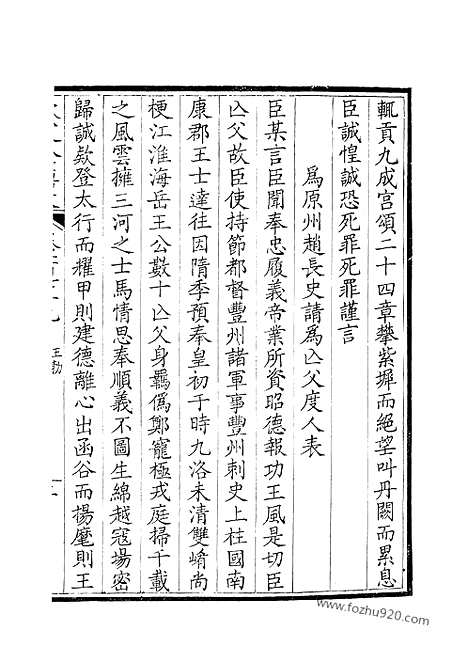 輒貢九成宮頌二十四章攀紫墀而絕望叫丹闕而累息
臣誠惶誠恐死罪死罪謹言
爲原州趙長史請爲亾父度人表
臣某言臣聞奉忠履義帝業所資昭德報功王風是切臣
亾父故臣使持節都督豐州諸軍事豐州刺史上柱國南
康郡王士達往因隋季預奉皇初于時九洛未清雙崤尚
梗江淮海岳王公數十亾父身羈僞鄭寵極戎庭掃千載
之風雲擁三河之士馬情思奉順義不圖生綿越寇場密
歸誠欵登太行而擐甲則建德離心出函谷而楊麾則王
王勃
www.fozhu920.com